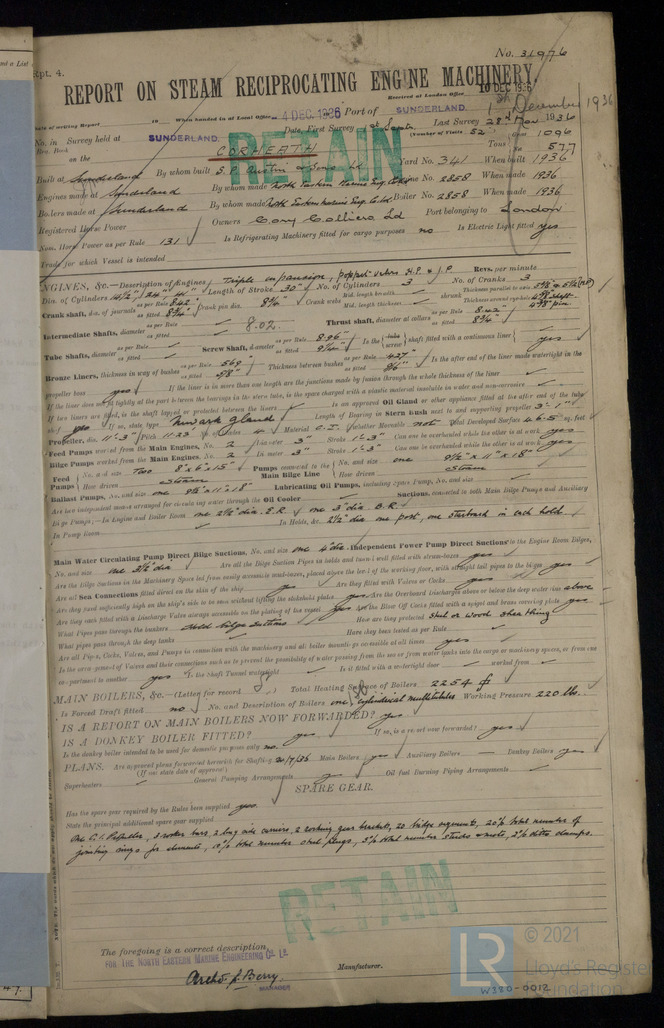 No. 31976
Rpt. 4.
REPORT ON STEAM RECIPROCATING ENGINE MACHINERY.
Received at London Office 10 DEC 1936
Date of writing Report 19 When handed in at Local Office - 4 DEC. 1936 Port of SUNDERLAND. 1st December 1936
No. in Survey held at SUNDERLAND. Date, First Survey Last Survey 1936
Reg. Book (Number of Visits 52)
on the CORHEATH Tons Gross 1096
Net 577
Built at Sunderland By whom built S. P. Austin & Sons Ltd. Yard No. 341 When built 1936
Engines made at Sunderland By whom made North Eastern Marine Eng. Co. Ld. Engine No. 2858 When made 1936
Boilers made at Sunderland By whom made North Eastern Marine Eng. Co. Ld. Boiler No. 2858 When made 1936
Registered Horse Power Owners Cory Colliers Ld Port belonging to London
Nom. Horse Power as per Rule 131 Is Refrigerating Machinery fitted for cargo purposes no Is Electric Light fitted yes
Trade for which Vessel is intended
ENGINES, &c.—Description of Engines Triple expansion, poppet valves H.P. & I.P. Revs. per minute
Dia. of Cylinders Length of Stroke 30" No. of Cylinders 3 No. of Cranks 3
Crank shaft, dia. of journals as per Rule 8.42 as fitted 8¾" Crank pin dia. 8¾" Crank webs Mid. length breadth shrunk Thickness parallel to axis
Mid. length thickness Thickness around eyehole
Intermediate Shafts, diameter as per Rule 8.02. as fitted Thrust shaft, diameter at collars as per Rule 8.42 as fitted 8¾"
Tube Shafts, diameter as per Rule as fitted Screw Shaft, diameter as per Rule 8.96" as fitted 9¼" Is the tube screw shaft fitted with a continuous liner yes
Bronze Liners, thickness in way of bushes as per Rule .569" as fitted 5/8" Thickness between bushes as per Rule .427" as fitted Is the after end of the liner made watertight in the
propeller boss yes If the liner is in more than one length are the junctions made by fusion through the whole thickness of the liner
If the liner does not fit tightly at the part between the bearings in the stern tube, is the space charged with a plastic material insoluble in water and non-corrosive
If two liners are fitted, is the shaft lapped or protected between the liners Is an approved Oil Gland or other appliance fitted at the after end of the tube
shaft yes If so, state type Newark gland Length of Bearing in Stern Bush next to and supporting propeller 3'-1"
Propeller, dia. 11'-3" Pitch 11.33 No. of blades Material C.I. whether Moveable not Total Developed Surface 46.5 sq. feet
Feed Pumps worked from the Main Engines, No. 2 Diameter 3" Stroke 1'-3" Can one be overhauled while the other is at work yes
Bilge Pumps worked from the Main Engines, No. 2 Diameter 3" Stroke 1'-3" Can one be overhauled while the other is at work yes
Feed Pumps No. and size Two 8"x6"x15" Pumps connected to the Main Bilge Line No. and size one 9½"x11"x18"
How driven steam How driven steam
Ballast Pumps, No. and size one 9½"x11"x18" Lubricating Oil Pumps, including Spare Pump, No. and size
Are two independent means arranged for circulating water through the Oil Cooler Suctions, connected to both Main Bilge Pumps and Auxiliary
Bilge Pumps;—In Engine and Boiler Room one 2½" dia. E.R. one 3" dia. B.R.
In Pump Room In Holds, &c. 2½" dia one port, one starboard in each hold.
Main Water Circulating Pump Direct Bilge Suctions, No. and size one 4" dia. Independent Power Pump Direct Suctions to the Engine Room Bilges,
No. and size one 3½" dia Are all the Bilge Suction Pipes in holds and tunnel well fitted with strum-boxes yes
Are the Bilge Suctions in the Machinery Space led from easily accessible mud-boxes, placed above the level of the working floor, with straight tail pipes to the bilges yes
Are all Sea Connections fitted direct on the skin of the ship yes Are they fitted with Valves or Cocks yes
Are they fixed sufficiently high on the ship's side to be seen without lifting the stokehold plates yes Are the Overboard Discharges above or below the deep water line above
Are they each fitted with a Discharge Valve always accessible on the plating of the vessel yes Are the Blow Off Cocks fitted with a spigot and brass covering plate yes
What Pipes pass through the bunkers Hold bilge suctions How are they protected steel or wood sheathing
What pipes pass through the deep tanks Have they been tested as per Rule
Are all Pipes, Cocks, Valves, and Pumps in connection with the machinery and all boiler mountings accessible at all times yes
Is the arrangement of Valves and their connections such as to prevent the possibility of water passing from the sea or from water tanks into the cargo or machinery spaces, or from one
compartment to another yes Is the Shaft Tunnel watertight Is it fitted with a watertight door worked from
MAIN BOILERS, &c.—(Letter for record S) Total Heating Surface of Boilers 2254
Is Forced Draft fitted no No. and Description of Boilers one cylindrical multitubular Working Pressure 220 lbs.
IS A REPORT ON MAIN BOILERS NOW FORWARDED? yes
IS A DONKEY BOILER FITTED? yes If so, is a report now forwarded? yes
Is the donkey boiler intended to be used for domestic purposes only no
PLANS. Are approved plans forwarded herewith for Shafting 20/7/36 Main Boilers yes Auxiliary Boilers — Donkey Boilers yes
(If not state date of approval)
Superheaters General Pumping Arrangements yes Oil fuel Burning Piping Arrangements
SPARE GEAR.
Has the spare gear required by the Rules been supplied yes.
State the principal additional spare gear supplied
One C.I. Propeller, 3 rocker bars, 2 carriers, 2 rocking gear brackets, 20 bridge segments, 20% total number of
jointing rings for elements, 10% total number steel plugs, 5% total number studs & nuts, 5% ditto clamps.
RETAIN
RETAIN
The foregoing is a correct description,
FOR THE NORTH EASTERN MARINE ENGINEERING Co. Ld.
Archd. J. Berry.
MANAGER
Manufacturer.
LR
© 2021
Lloyd's Register
Foundation
W380-0012